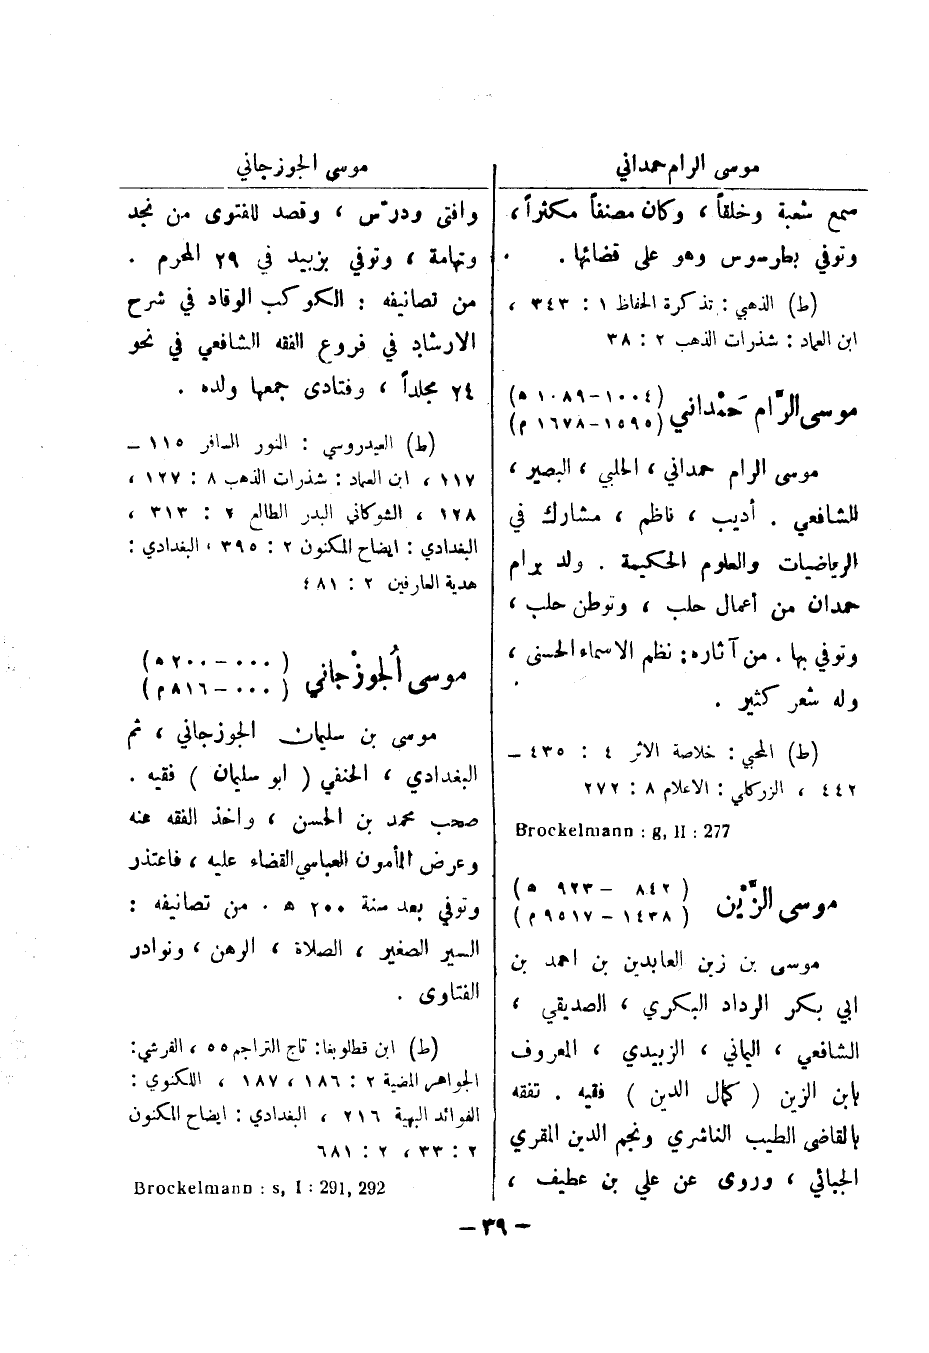 موسى الرام حمداني
سمع شعبة وخلقاً ، وكان مصنفاً مكثراً ،
وتوفي بطرسوس وهو على قضائها .
(ط) الذهبي : تذكرة الحفاظ ١ : ٣٤٣ ،
ابن العماد : شذرات الذهب ٢ : ٣٨
موسى الرَّام حَمْداني (١٠٠٤-١٠٨٩ هـ)
(١٥٩٥-١٦٧٨ م)
موسى الرام حمداني ، الحلبي ، البصير ،
الشافعي . أديب ، ناظم ، مشارك في
الرياضيات والعلوم الحكيمة . ولد برام
حمدان من أعمال حلب ، وتوطن حلب ،
وتوفي بها . من آثاره : نظم الاسماء الحسنى ،
وله شعر كثير .
(ط) المحبي : خلاصة الاثر ٤ : ٤٣٥ ــ
٤٤٢ ، الزركلي : الاعلام ٨ : ٢٧٢
Brockelmann : g, II : 277
موسى الزَّين (٨٤٢ – ٩٢٣ هـ)
(١٤٣٨ – ٩٥١٧ م)
موسى بن زين العابدين بن احمد بن
ابي بكر الرداد البكري ، الصديقي ،
الشافعي ، اليماني ، الزبيدي ، المعروف
بابن الزين ( كمال الدين ) فقيه . تفقه
بالقاضي الطيب الناشري ونجم الدين المقري
الجبائي ، وروى عن علي بن عطيف ،
موسى الجوزجاني
وافتى ودرّس ، وقصد للفتوى من نجد
وتهامة ، وتوفي بزبيد في ٢٩ المحرم .
من تصانيفه : الكوكب الوقاد في شرح
الارشاد في فروع الفقه الشافعي في نحو
٢٤ مجلداً ، وفتادى جمعها ولده .
(ط) العيدروسي : النور السافر ١١٥ ــ
١١٧ ، ابن العماد : شذرات الذهب ٨ : ١٢٧ ،
١٢٨ ، الشوكاني البدر الطالع ٢ : ٣١٣ ،
البغدادي : ايضاح المكنون ٢ : ٣٩٥ ، البغدادي :
هدية العارفين ٢ : ٤٨١
موسى الُجوزْجاني (٠٠٠ – ٢٠٠ هـ)
(٠٠٠ – ٨١٦ م)
موسى بن سليمان الجوزجاني ، ثم
البغدادي ، الحنفي ( ابو سليمان ) فقيه .
صحب محمد بن الحسن ، واخذ الفقه عنه
وعرض المأمون العباسي القضاء عليه ، فاعتذر
وتوفي بعد سنة ٢٠٠ هـ . من تصانيفه :
السير الصغير ، الصلاة ، الرهن ، ونوادر
الفتاوى .
(ط) ابن قطلوبغا : تاج التراجم ٥٥ ، القرشي :
الجواهر المضية ٢ : ١٨٦ ، ١٨٧ ، اللكنوي :
الفوائد البهية ٢١٦ ، البغدادي : ايضاح المكنون
٢ : ٣٣ ، ٢ : ٦٨١
Brockelmann : s, I : 291, 292
– ٣٩ –